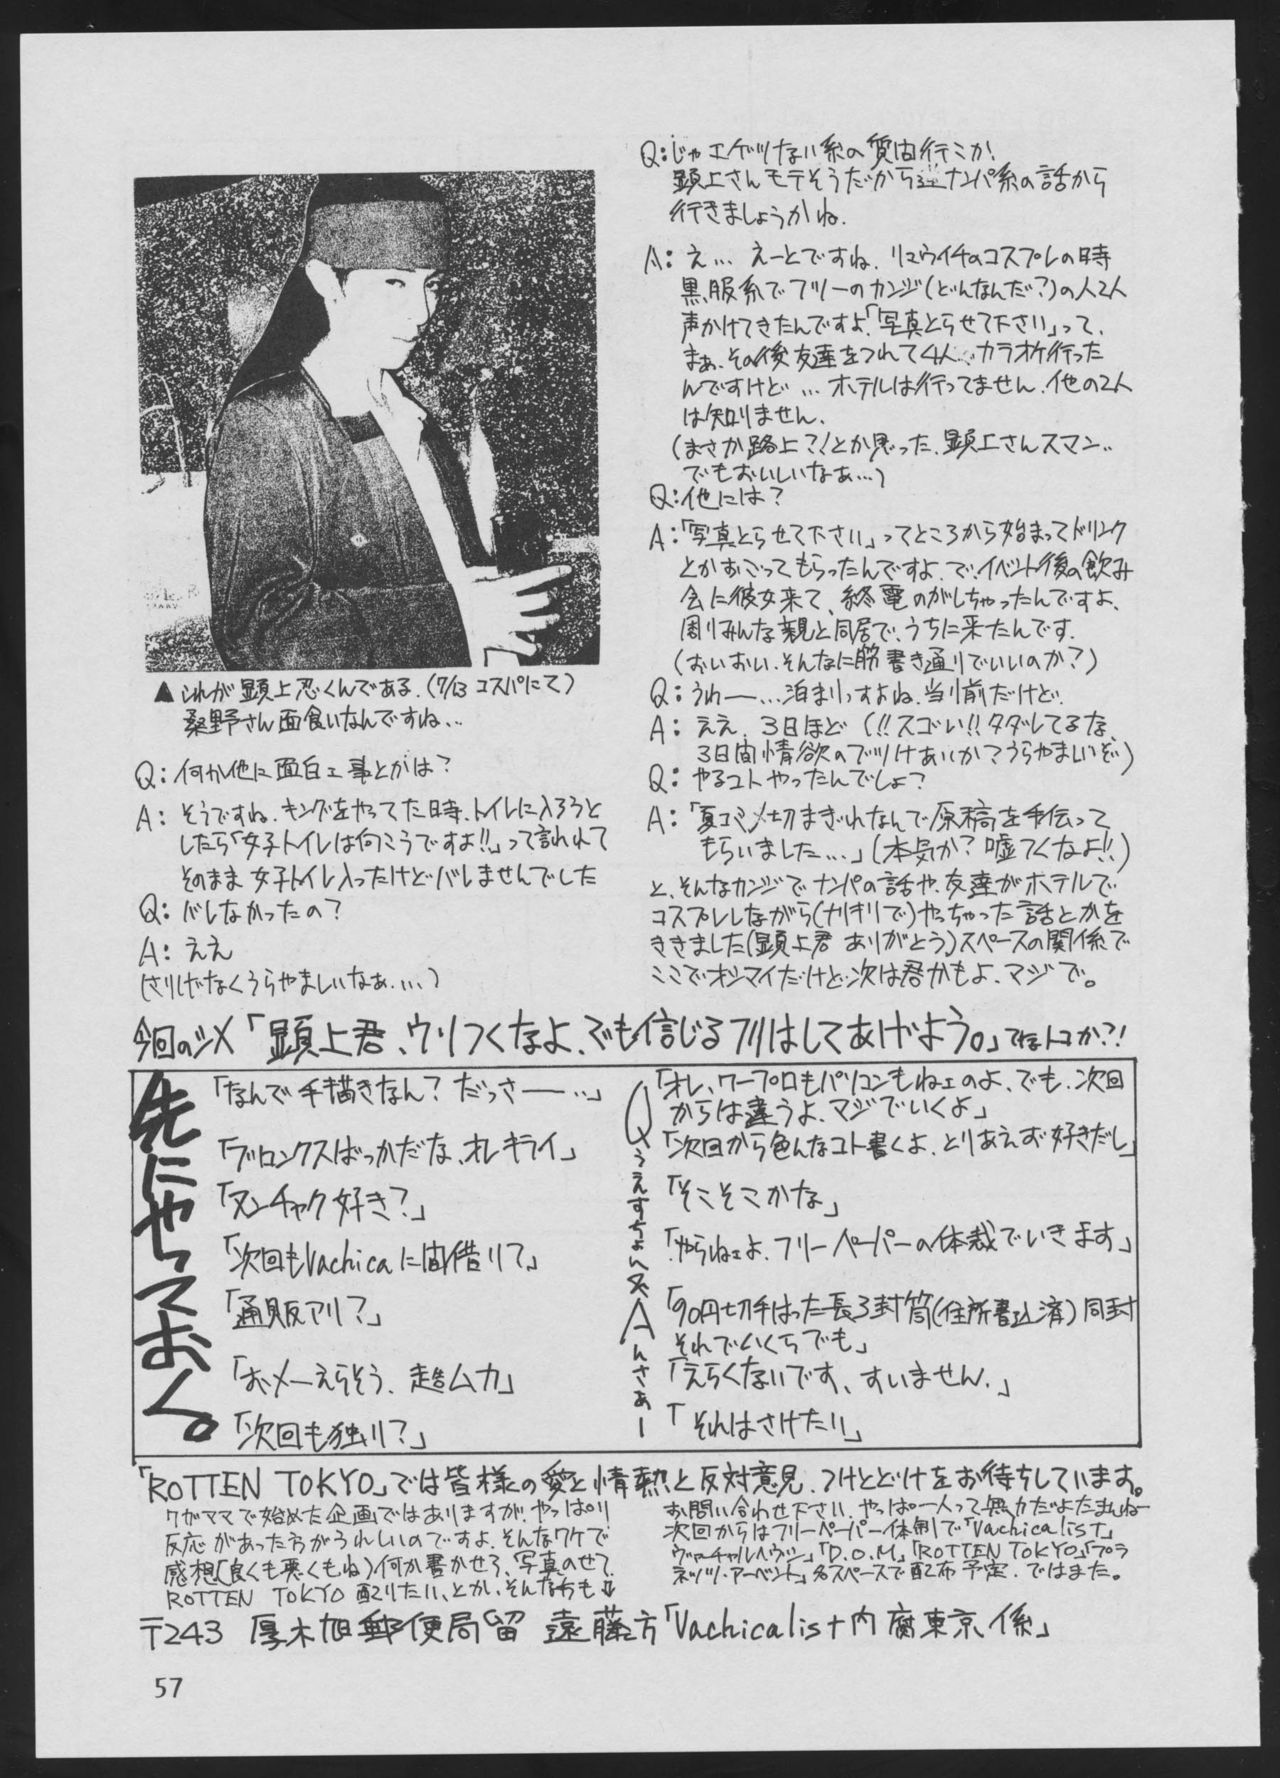 ▲これが顕上忍くんである.(7/13 コスパにて)
桑野さん面食いなんですね...
Q: 何か他に面白エ事とかは?
A: そうですね. キングをやってた時. トイレに入ろうと
したら「女子トイレは向こうですよ!!」って言われて
そのまま 女子トイレ入ったけどバレませんでした
Q: バレなかったの?
A: ええ
(さりげなくうらやましいなぁ....)
Q:じゃエゲツない系の質問行こか!
顕上さんモテそうだから逆ナンパ系の話から
行きましょうかね.
A: え... えーとですね. リュウイチのコスプレの時
黒服系でフリーのカンジ(どんなんだ?)の人2人
声かけてきたんですよ「写真とらせて下さい」って.
まぁ、その後友達をつれて4人、カラオケ行った
んですけど ... ホテルは行ってません. 他の2人
は知りません.
(まさか路上?!とか思った. 顕上さんスマン..
でもおいしいなぁ...)
Q:他には?
A:「写真とらせて下さい」ってところから始まってドリンク
とかおごってもらったんですよ. で、イベント後の飲み
会に彼女来て、終電のがしちゃったんですよ、
周りみんな親と同居で、うちに来たんです.
(おいおい. そんなに筋書き通りでいいのか?)
Q: うわー... 泊まりっすよね. 当り前だけど.
A: ええ. 3日ほど (!!スゴい!! タダレてるな.
3日間情欲のぶつけあいか?うらやましいぞ)
Q: やるコトやったんでしょ?
A: 「夏コミ〆切まぎわなんで原稿を手伝って
もらいました....」(本気か? 嘘てくなよ!!)
と、そんなカンジでナンパの話や、友達がホテルで
コスプレしながら(ナリキリで)やっちゃった話とかを
ききました(顕上君 ありがとう)スペースの関係で
ここでオシマイだけど次は君かもよ、マジで。
今回のシメ「顕上君、ウソつくなよ、でも信じるフリはしてあげよう。」てなトコか?!
先にやっておく。
「なんで手描きなん? だっさー...」
「ブロンクスばっかだな、オレキライ」
「ヌンチャク好き?」
「次回もVachicaに間借りて」
「通販アリ?」
「おメーえらそう、超ムカ」
「次回も独り?」
Qうえすちょん&Aんさぁー
「オレ、ワープロもパソコンもねェのよ、でも、次回
からは違うよ、マジでいくよ」
「次回から色んなコト書くよ、とりあえず好きだし」
「そこそこかな」
「やらねェよ、フリーペーパーの体裁でいきます」
「90円切手はった長3封筒(住所書込済)同封
それでいくらでも」
「えらくないです、すいません.」
「それはさけたい」
「ROTTEN TOKYO」では皆様の愛と情熱と反対意見、つけとどけをお待ちしています。
ワガママで始めた企画ではありますが、やっぱり
反応があった方がうれしいのですよ、そんなワケで
感想(良くも悪くもね)何か書かせろ、写真のせて
ROTTEN TOKYO 配りたい、とか、そんな方も↓
お問い合わせ下さい、やっぱ一人って無力だよたまんねー
次回からはフリーペーパー体制で「Vachicalist」
ヴァーチャルヘヴン」「D.O.M」「ROTTEN TOKYO」「プラ
ネッツ・アーベント」各スペースで配布予定. ではまた。
〒243 厚木旭郵便局留 遠藤方「Vachicalist内 腐東京係」
57